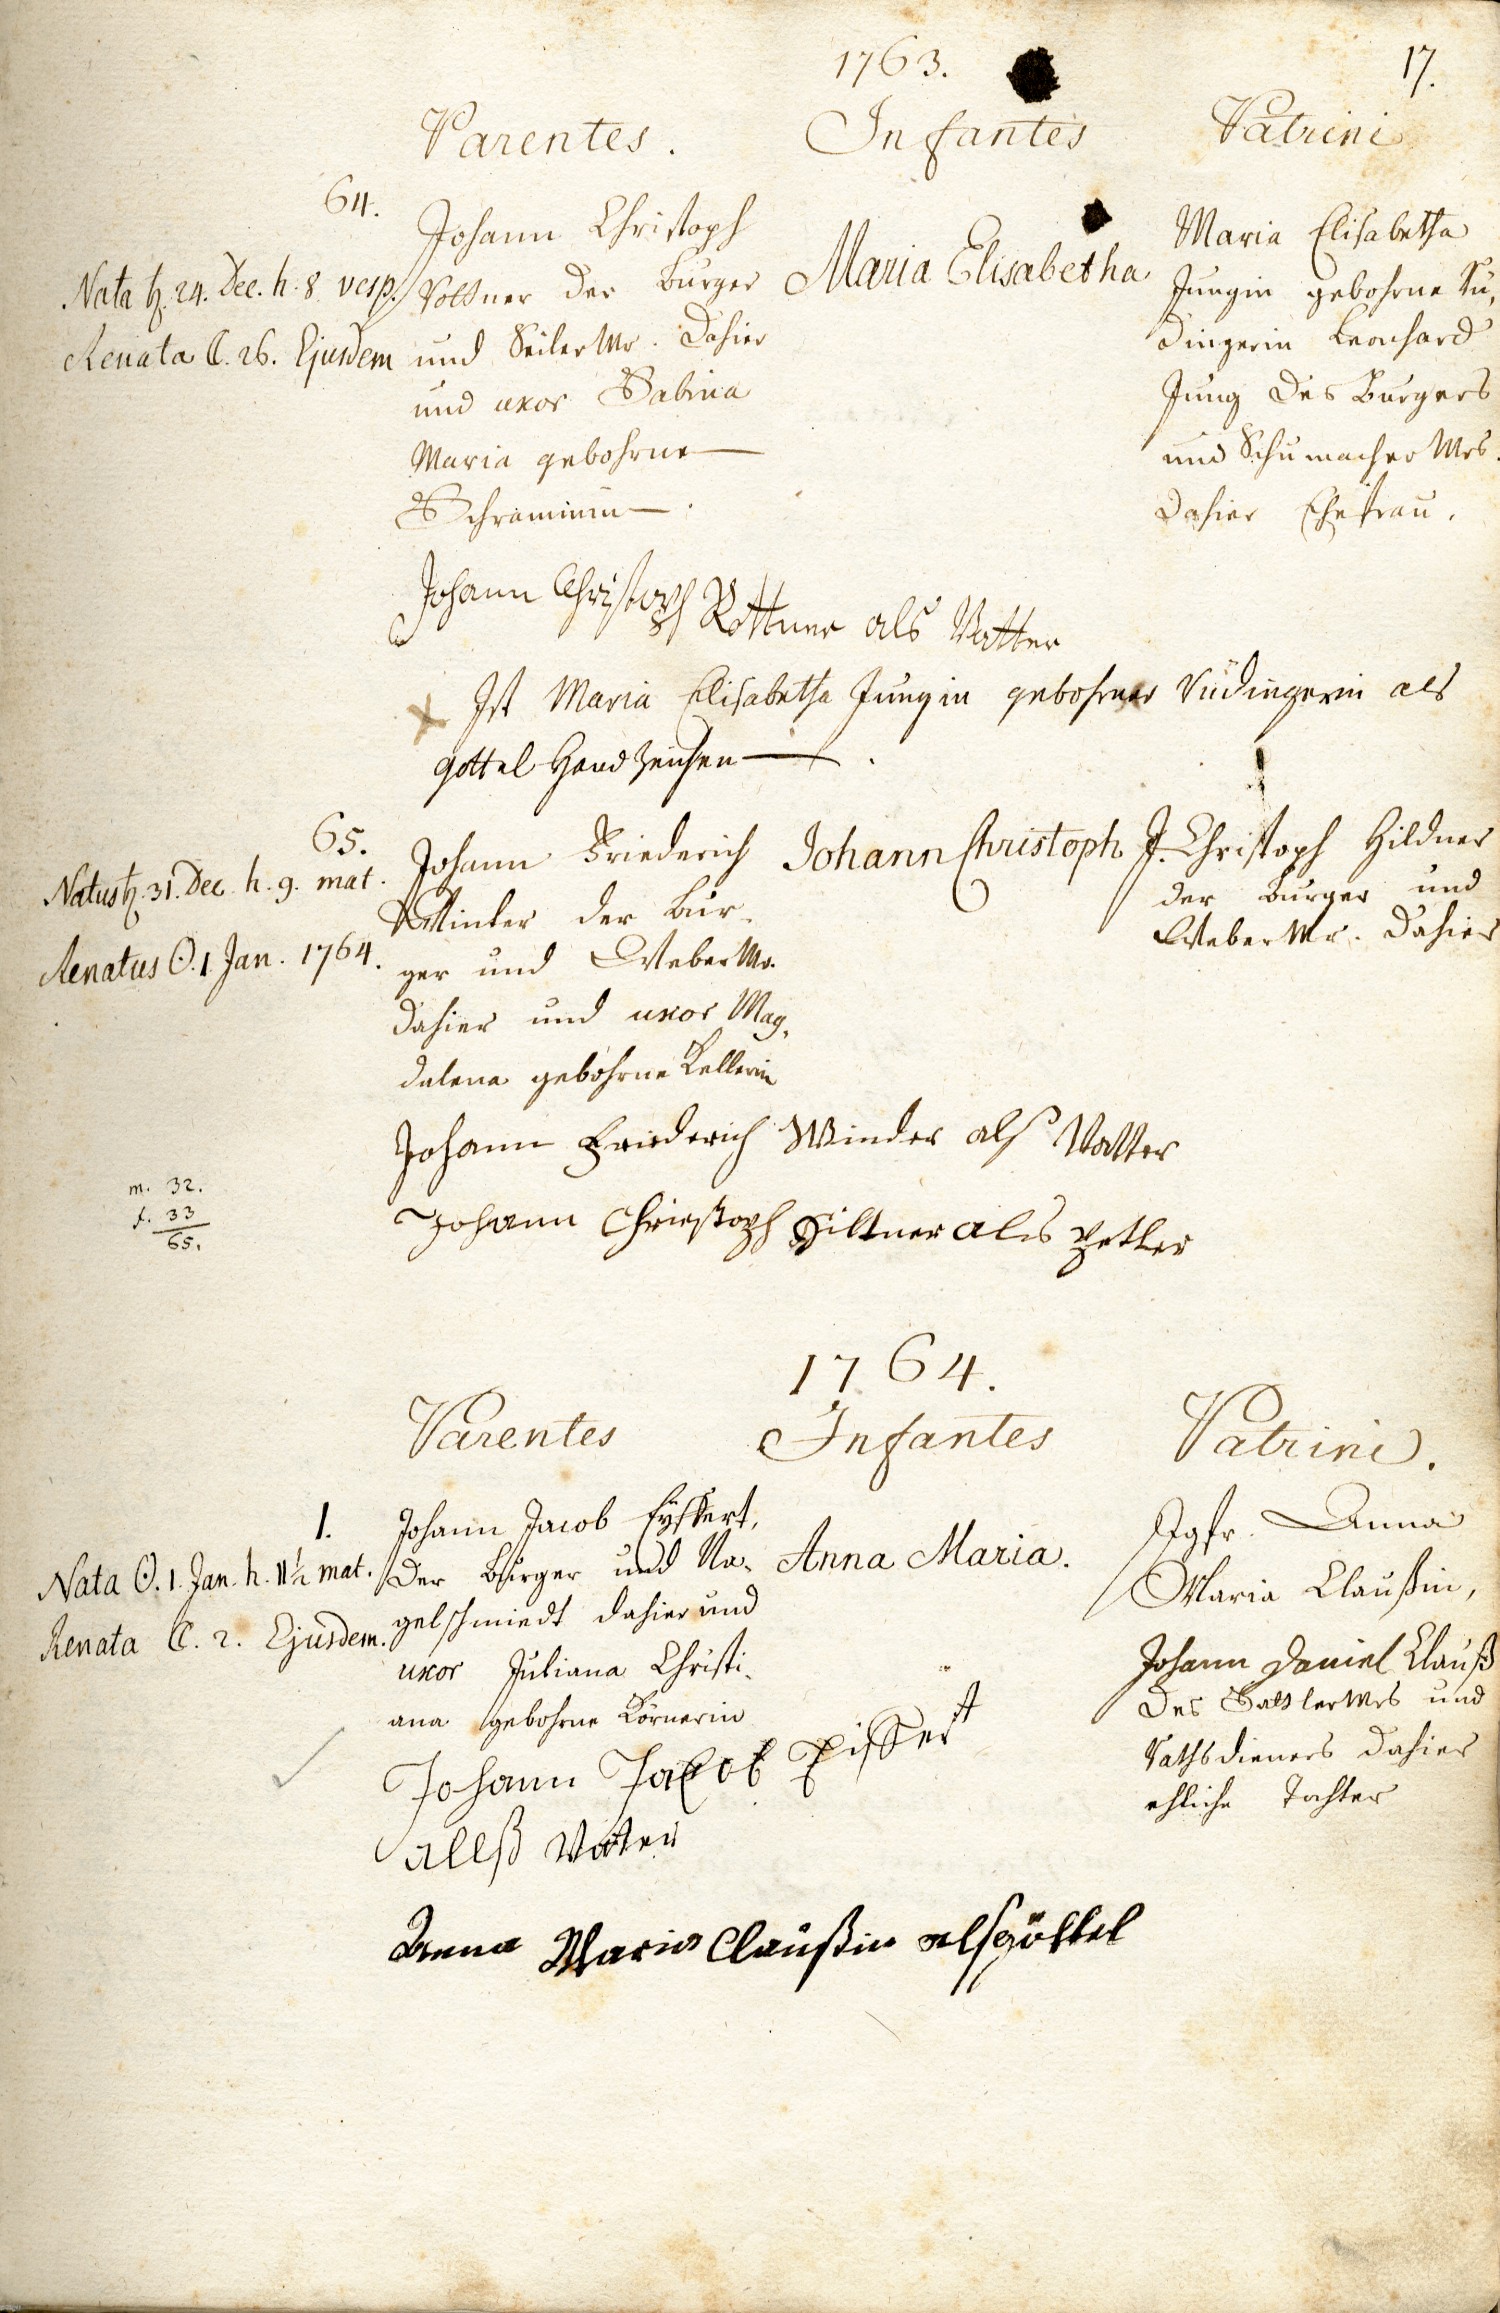 1763.
17.
Parentes. Infantes Patrini
64.
Nata ♄. 24. Dec. h. 8 vesp.
Renata ☾. 26. Ejusdem
Johann Christoph
Rottner der Burger
und Seiler Mr. dahier
und uxor Sabina
Maria gebohrne —
Schrammin — .
Maria Elisabetha
Maria Elisabetha
Jungin gebohrne Rü,
dingerin Leonhard
Jung des Burgers
und Schumacher Mrs.
dahier Ehefrau.
Johann Christoph Rottner als Vatter
x Ist Maria Elisabetha Jungin gebohrner Rüdingerin als
gottel Handzeichen — .
65.
Natus ♄. 31. Dec h. 9. mat.
Renatus ☉. 1 Jan. 1764.
Johann Friederich
Winter der Bur-
ger und Weber Mr.
dahier und uxor Mag,
dalena gebohrne Kellerin
Johann Christoph
J. Christoph Hildner
der Burger und
Weber Mr. dahier
Johann Friederich Winder als Vatter
Johann Christoph Hiltner als Petter
m. 32.
f. 33
65.
1764.
Parentes Infantes Patrini.
1.
Nata ☉. 1. Jan. h. 11½ mat.
Renata ☾. 2. Ejusdem.
Johann Jacob Eyssert,
der Burger und Na-
gelschmiedt dahier und
uxor Juliana Christi-
ana gebohrne Körnerin
Anna Maria.
Jgfr. Anna
Maria Claußin,
Johann Daniel Clauß
des Sattler Mrs und
Rathsdieners dahier
ehliche Tochter
Johann Jacob Eissert
allß Vater
Anna Maria Claußin als göttel